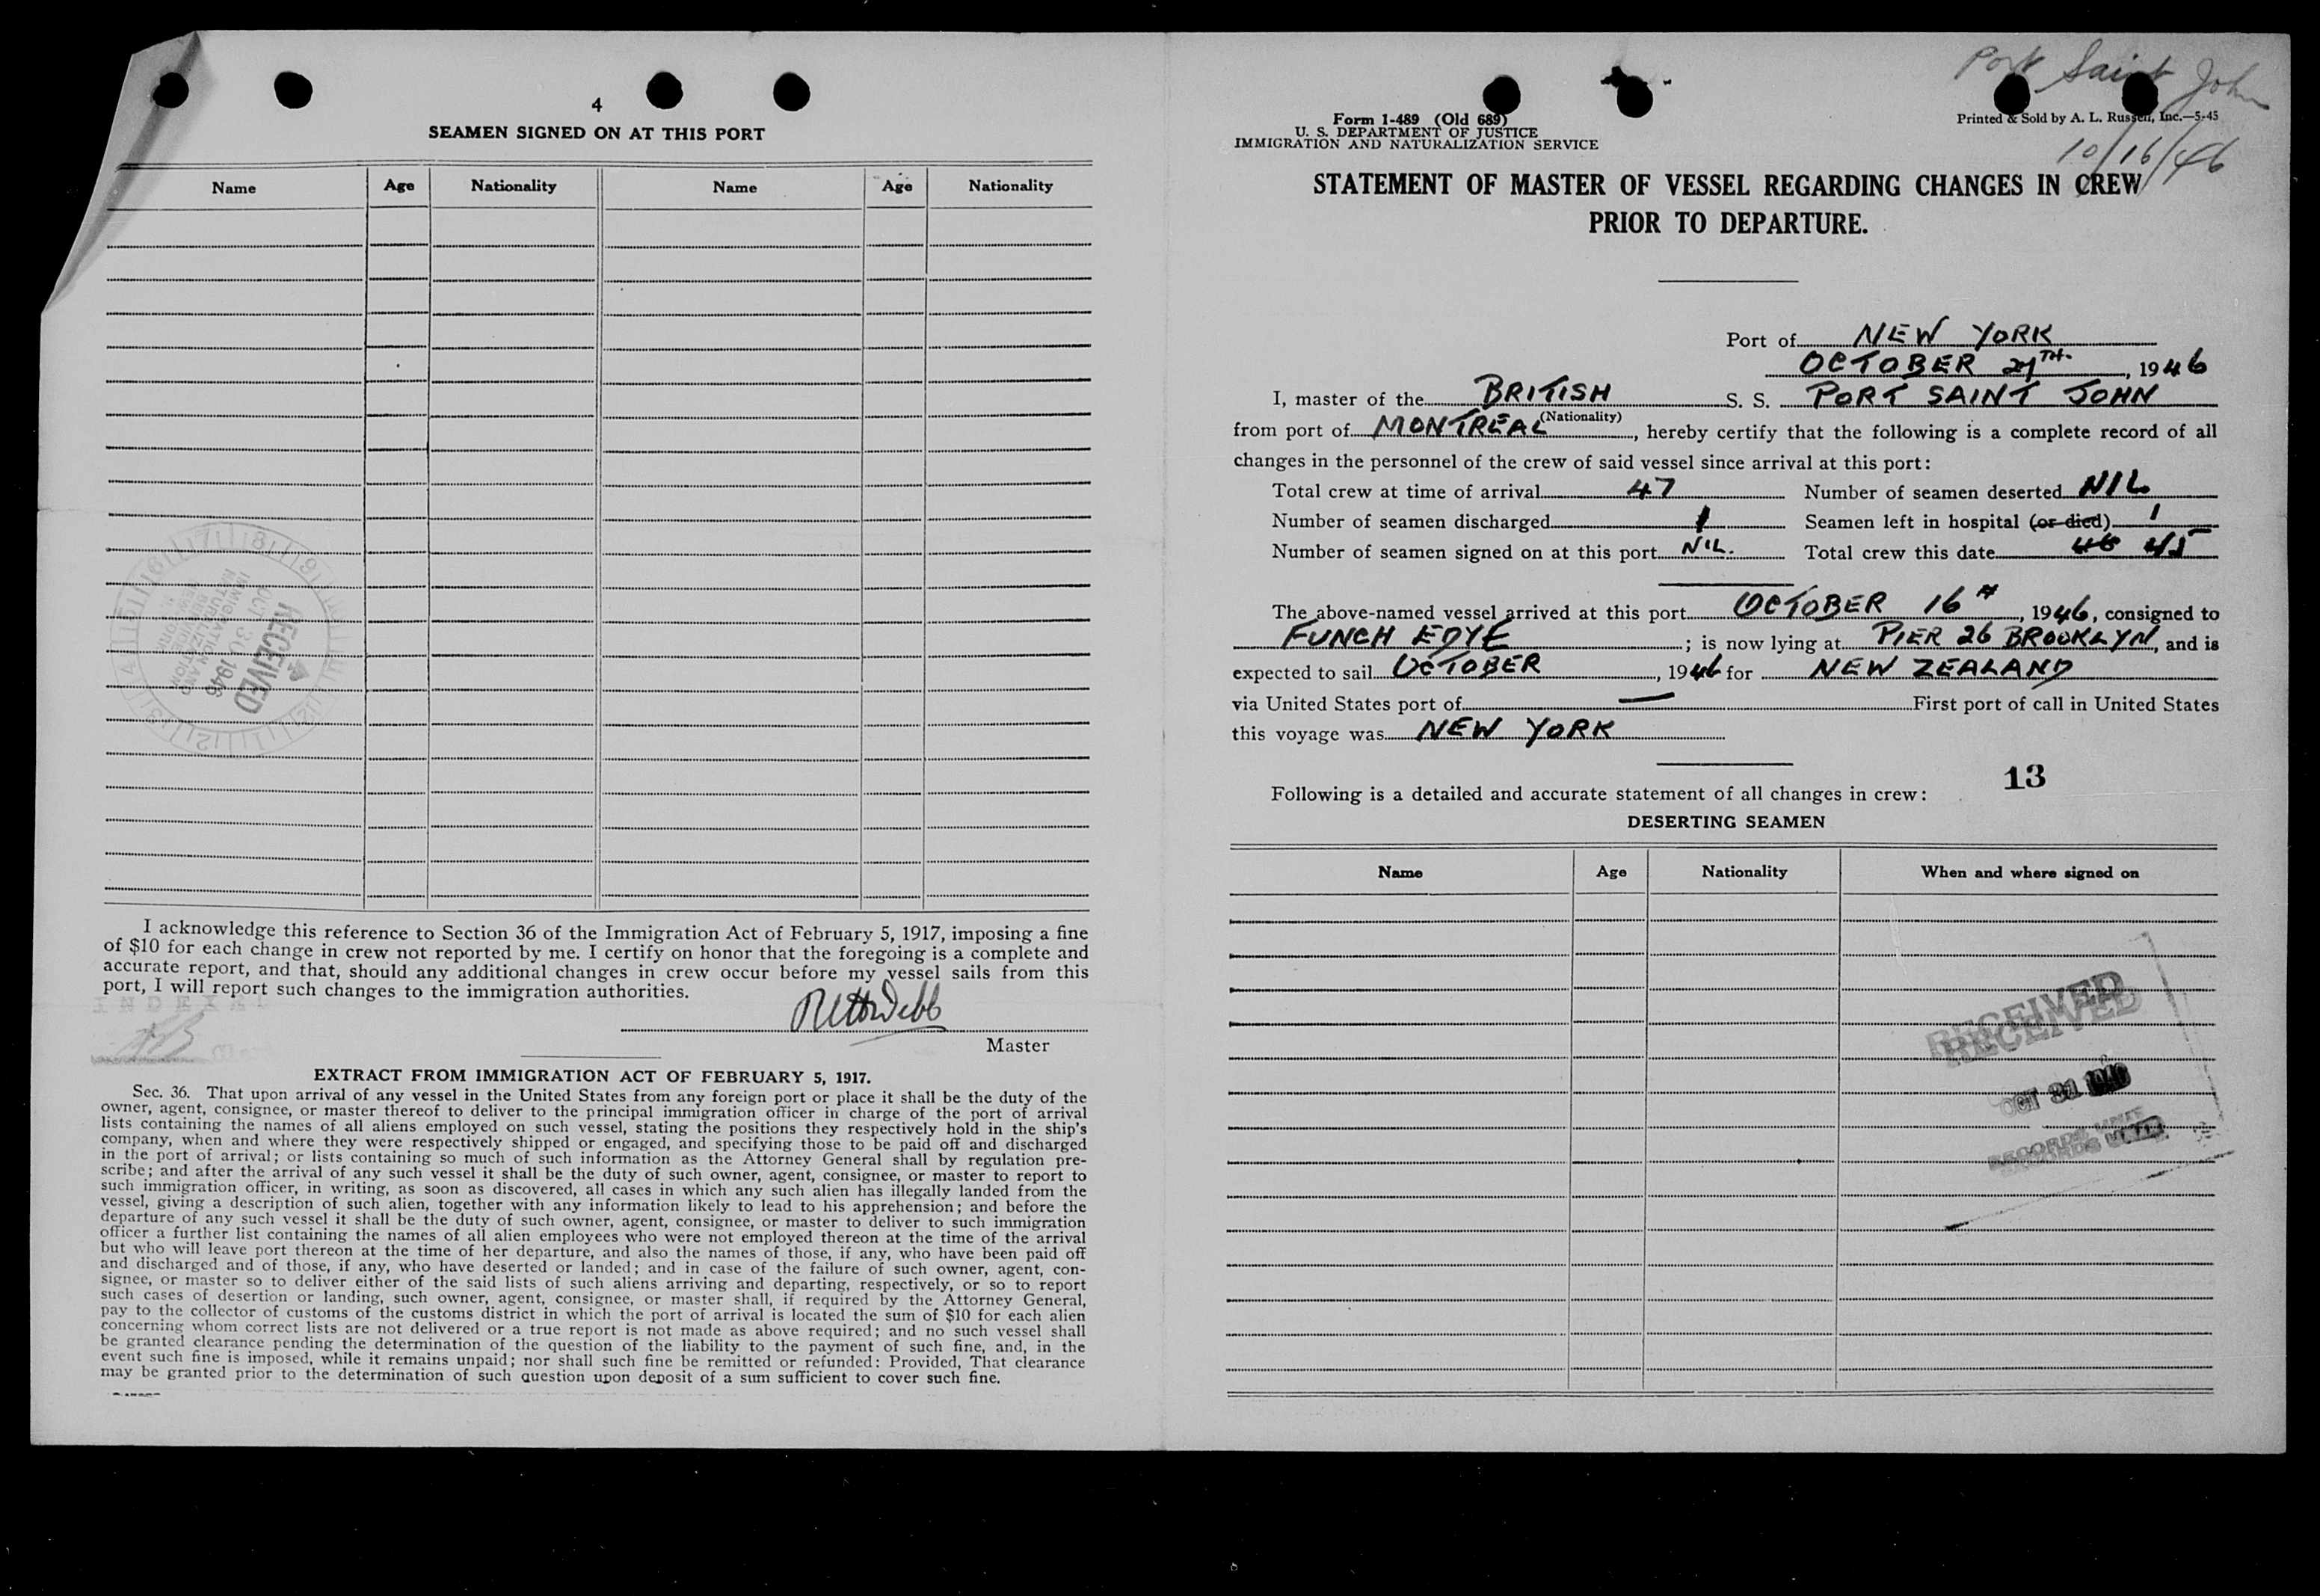 4
SEAMEN SIGNED ON AT THIS PORT
Name Age Nationality Name Age Nationality
RECEIVED
OCT 30 1946
IMMIGRATION AND
NATURALIZATION
I acknowledge this reference to Section 36 of the Immigration Act of February 5, 1917, imposing a fine
of $10 for each change in crew not reported by me. I certify on honor that the foregoing is a complete and
accurate report, and that, should any additional changes in crew occur before my vessel sails from this
port, I will report such changes to the immigration authorities.
Master
EXTRACT FROM IMMIGRATION ACT OF FEBRUARY 5, 1917.
Sec. 36. That upon arrival of any vessel in the United States from any foreign port or place it shall be the duty of the
owner, agent, consignee, or master thereof to deliver to the principal immigration officer in charge of the port of arrival
lists containing the names of all aliens employed on such vessel, stating the positions they respectively hold in the ship's
company, when and where they were respectively shipped or engaged, and specifying those to be paid off and discharged
in the port of arrival; or lists containing so much of such information as the Attorney General shall by regulation pre-
scribe; and after the arrival of any such vessel it shall be the duty of such owner, agent, consignee, or master to report to
such immigration officer, in writing, as soon as discovered, all cases in which any such alien has illegally landed from the
vessel, giving a description of such alien, together with any information likely to lead to his apprehension; and before the
departure of any such vessel it shall be the duty of such owner, agent, consignee, or master to deliver to such immigration
officer a further list containing the names of all alien employees who were not employed thereon at the time of the arrival
but who will leave port thereon at the time of her departure, and also the names of those, if any, who have been paid off
and discharged and of those, if any, who have deserted or landed; and in case of the failure of such owner, agent, con-
signee, or master so to deliver either of the said lists of such aliens arriving and departing, respectively, or so to report
such cases of desertion or landing, such owner, agent, consignee, or master shall, if required by the Attorney General,
pay to the collector of customs of the customs district in which the port of arrival is located the sum of $10 for each alien
concerning whom correct lists are not delivered or a true report is not made as above required; and no such vessel shall
be granted clearance pending the determination of the question of the liability to the payment of such fine, and, in the
event such fine is imposed, while it remains unpaid; nor shall such fine be remitted or refunded: Provided, That clearance
may be granted prior to the determination of such question upon deposit of a sum sufficient to cover such fine.
Port Saint John
10/16/46
Form I-489 (Old 689)
U. S. DEPARTMENT OF JUSTICE
IMMIGRATION AND NATURALIZATION SERVICE
Printed & Sold by A. L. Russell, Inc.—5-45
STATEMENT OF MASTER OF VESSEL REGARDING CHANGES IN CREW
PRIOR TO DEPARTURE.
Port of NEW YORK
OCTOBER TH. , 1946
I, master of the BRITISH S. S. PORT SAINT JOHN
(Nationality)
from port of MONTREAL , hereby certify that the following is a complete record of all
changes in the personnel of the crew of said vessel since arrival at this port:
Total crew at time of arrival 47 Number of seamen deserted NIL
Number of seamen discharged 1 Seamen left in hospital (or died) 1
Number of seamen signed on at this port NIL. Total crew this date 46 45
The above-named vessel arrived at this port OCTOBER 16 , 1946, consigned to
FUNCH EDYE ; is now lying at PIER 26 BROOKLYN, and is
expected to sail OCTOBER , 1946 for NEW ZEALAND
via United States port of — First port of call in United States
this voyage was NEW YORK
13
Following is a detailed and accurate statement of all changes in crew:
DESERTING SEAMEN
Name Age Nationality When and where signed on
RECEIVED
OCT 31 1946
RECORDS UNIT